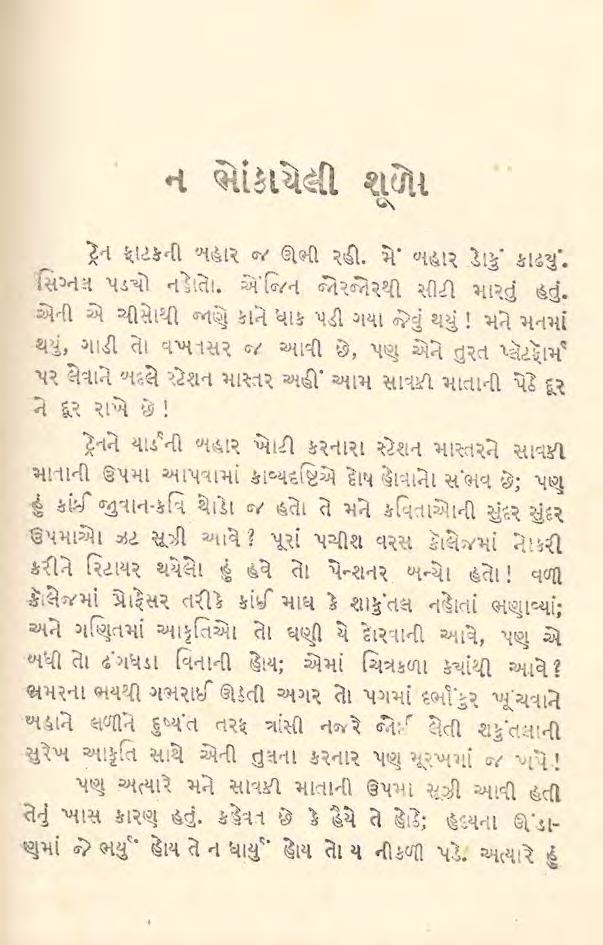 ન ભોંકાયેલી શૂળો
ટ્રેન ફાટકની બહાર જ ઊભી રહી. મેં બહાર ડોકું કાઢયું.
સિગ્નલ પડયો નહોતો. એંજિન જોરજોરથી સીટી મારતું હતું.
એની એ ચીસોથી જાણે કાને ધાક પડી ગયા જેવું થયું ! મને મનમાં
થયું, ગાડી તો વખતસર જ આવી છે, પણ એને તુરત પ્લૅટફૉર્મ
પર લેવાને બદલે સ્ટેશન માસ્તર અહીં આમ સાવકી માતાની પેઠે દૂર
ને દૂર રાખે છે !
ટ્રેનને યાર્ડની બહાર ખોટી કરનારા સ્ટેશન માસ્તરને સાવકી
માતાની ઉપમા આપવામાં કાવ્યદૃષ્ટિએ દોષ હોવાનો સંભવ છે; પણ
હું કાંઈ જુવાન-કવિ થોડો જ હતો તે મને કવિતાઓની સુંદર સુંદર
ઉપમાઓ ઝટ સૂઝી આવે ? પૂરાં પચીશ વરસ કૉલેજમાં નોકરી
કરીને રિટાયર થયેલો હું હવે તો પેન્શનર બન્યો હતો ! વળી
કૉલેજમાં પ્રોફેસર તરીકે કાંઈ માઘ કે શાકુંતલ નહોતાં ભણાવ્યાં;
અને ગણિતમાં આકૃતિઓ તો ઘણી યે દોરવાની આવે, પણ એ
બધી તો ઢંગધડા વિનાની હોય; એમાં ચિત્રકળા ક્યાંથી આવે ?
ભ્રમરના ભયથી ગભરાઈ ઊડતી અગર તો પગમાં દર્ભાંકુર ખૂંચવાને
બહાને લળીને દુષ્યંત તરફ ત્રાંસી નજરે જોઈ લેતી શકુંતલાની
સુરેખ આકૃતિ સાથે એની તુલના કરનાર પણ મૂરખમાં જ ખપે !
પણ અત્યારે મને સાવકી માતાની ઉપમા સૂઝી આવી હતી
તેનું ખાસ કારણ હતું. કહેવત છે કે હૈયે તે હોઠે; હૃદયના ઊંડા-
ણમાં જે ભર્યું હોય તે ન ધાર્યું હોય તો ય નીકળી પડે. અત્યારે હું